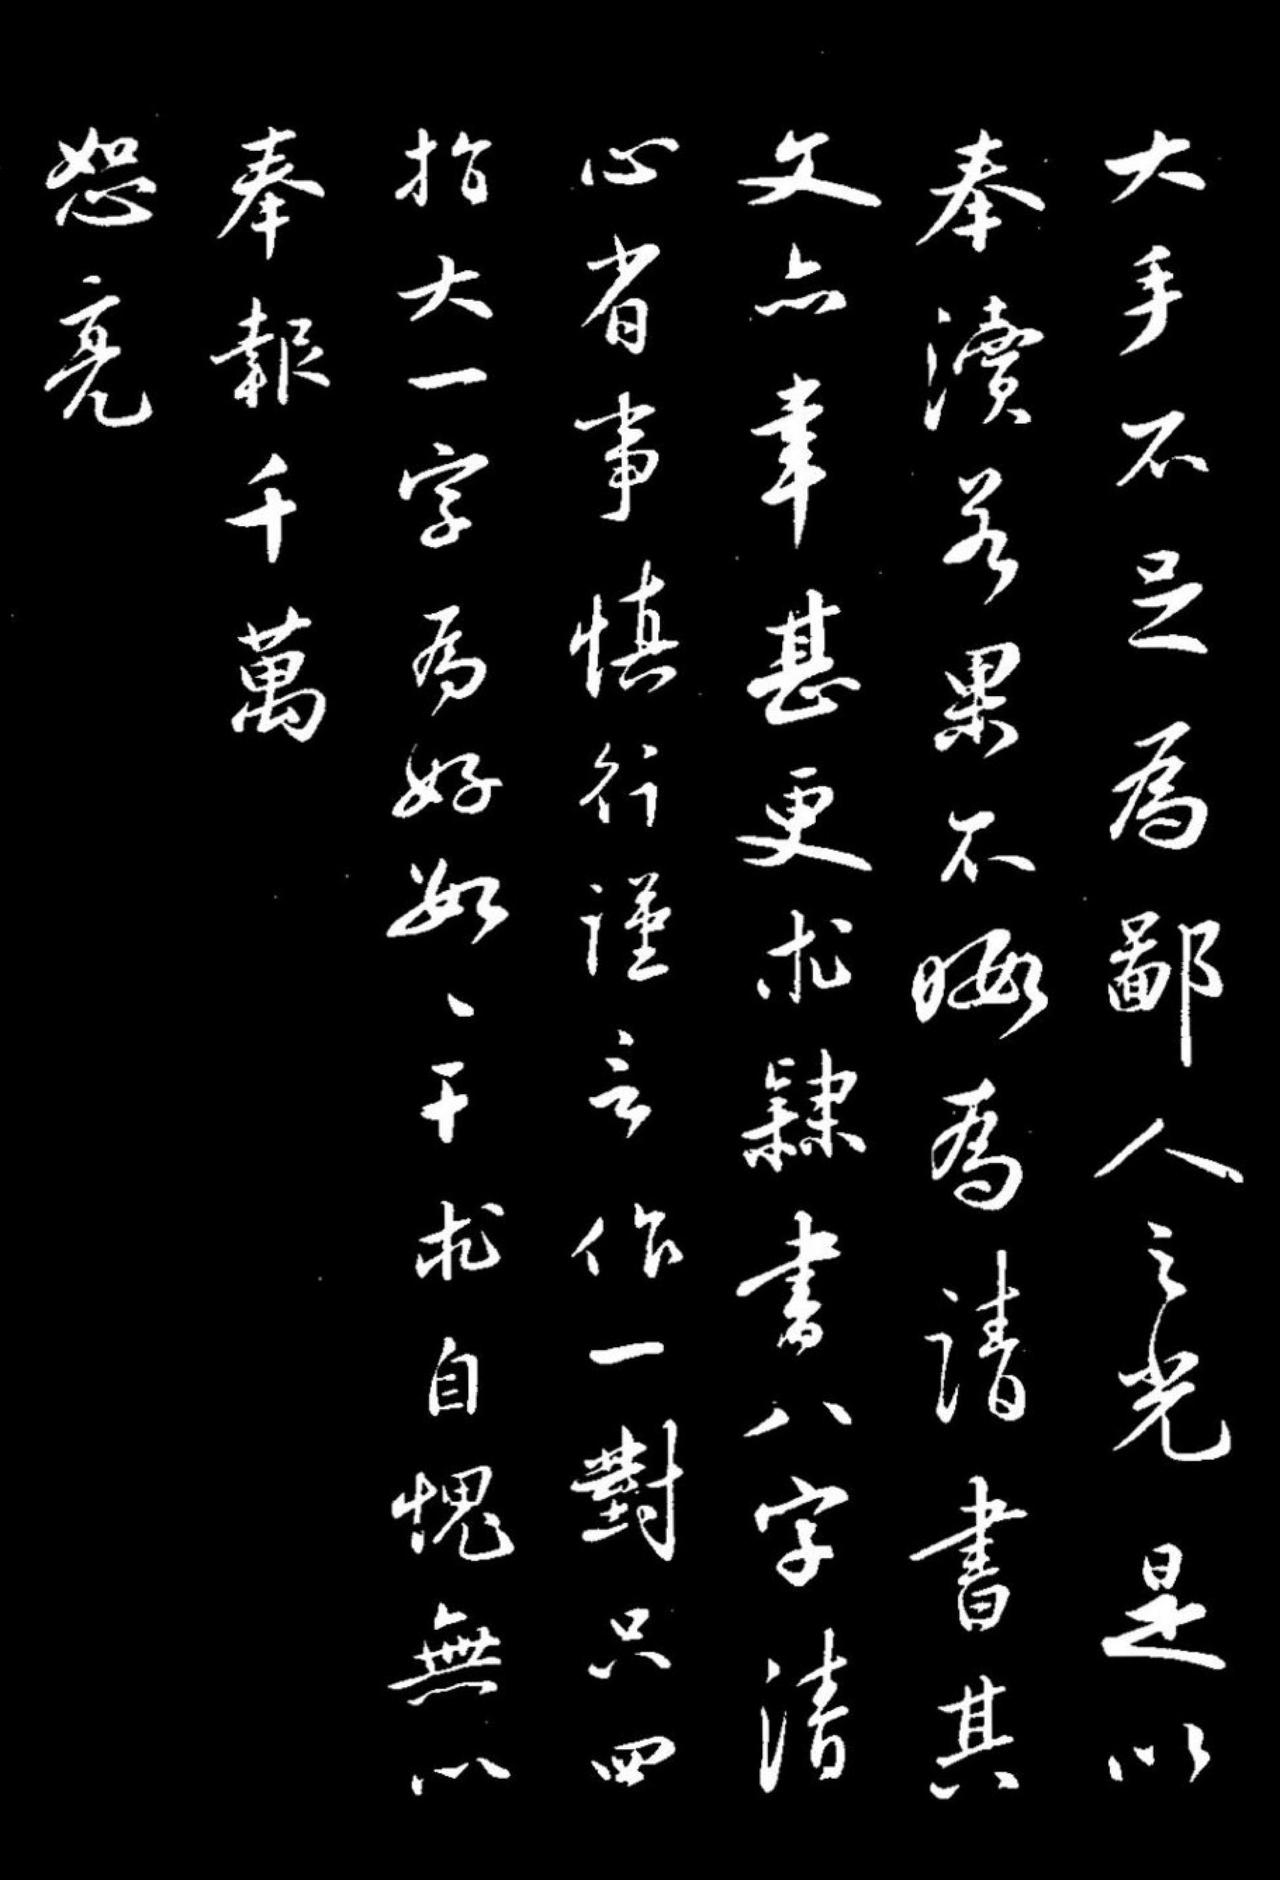 大手不足為鄙人之光是以
奉瀆若果不暇為請書其
文亦幸甚更求隸書八字清
心省事慎行謹言作一對只四
指大一字為好數〻干求自愧無以
奉報千萬
恕亮